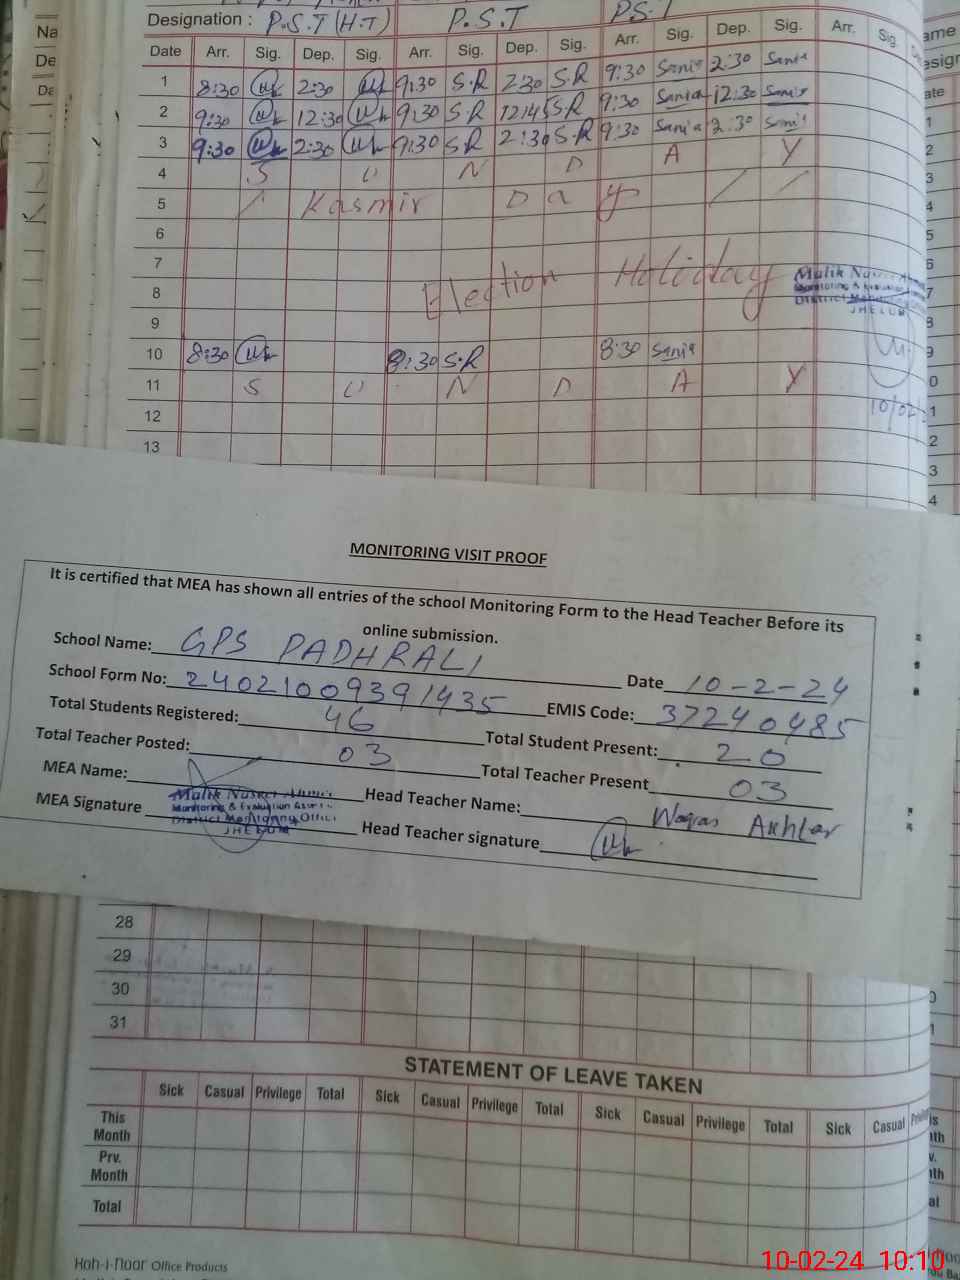 Designation : P.S.T (H.T) P.S.T PS.T
Date Arr. Sig. Dep. Sig. Arr. Sig. Dep. Sig. Arr. Sig. Dep. Sig. Arr. Sig.
1 8:30 2:30 9:30 S.R 2:30 S.R 9:30 Sania 2:30 Sania
2 9:30 12:30 9:30 S.R 12:45 S.R 9:30 Sania 12:30 Sania
3 9:30 2:30 9:30 S.R 2:30 S.R 9:30 Sania 2:30 Sania
4 S U N D A Y
5 Kasmir Day
6
7 Election Holiday
8
9
10 8:30 8:30 S.R 8:30 Sania
11 S U N D A Y
12
13
Malik Nasir
Monitoring &
District Monitoring
JHELUM
10/02
MONITORING VISIT PROOF
It is certified that MEA has shown all entries of the school Monitoring Form to the Head Teacher Before its
online submission.
School Name: GPS PADHRALI Date 10-2-24
School Form No: 24021009391435 EMIS Code: 37240485
Total Students Registered: 46 Total Student Present: 20
Total Teacher Posted: 03 Total Teacher Present 03
MEA Name: Head Teacher Name: Waqas Akhtar
MEA Signature Head Teacher signature
Malik
Monitoring & Evaluation
District Monitoring Office
JHELUM
28
29
30
31
STATEMENT OF LEAVE TAKEN
Sick Casual Privilege Total Sick Casual Privilege Total Sick Casual Privilege Total Sick Casual
This Month
Prv. Month
Total
Koh-i-noor Office Products
10-02-24 10:10